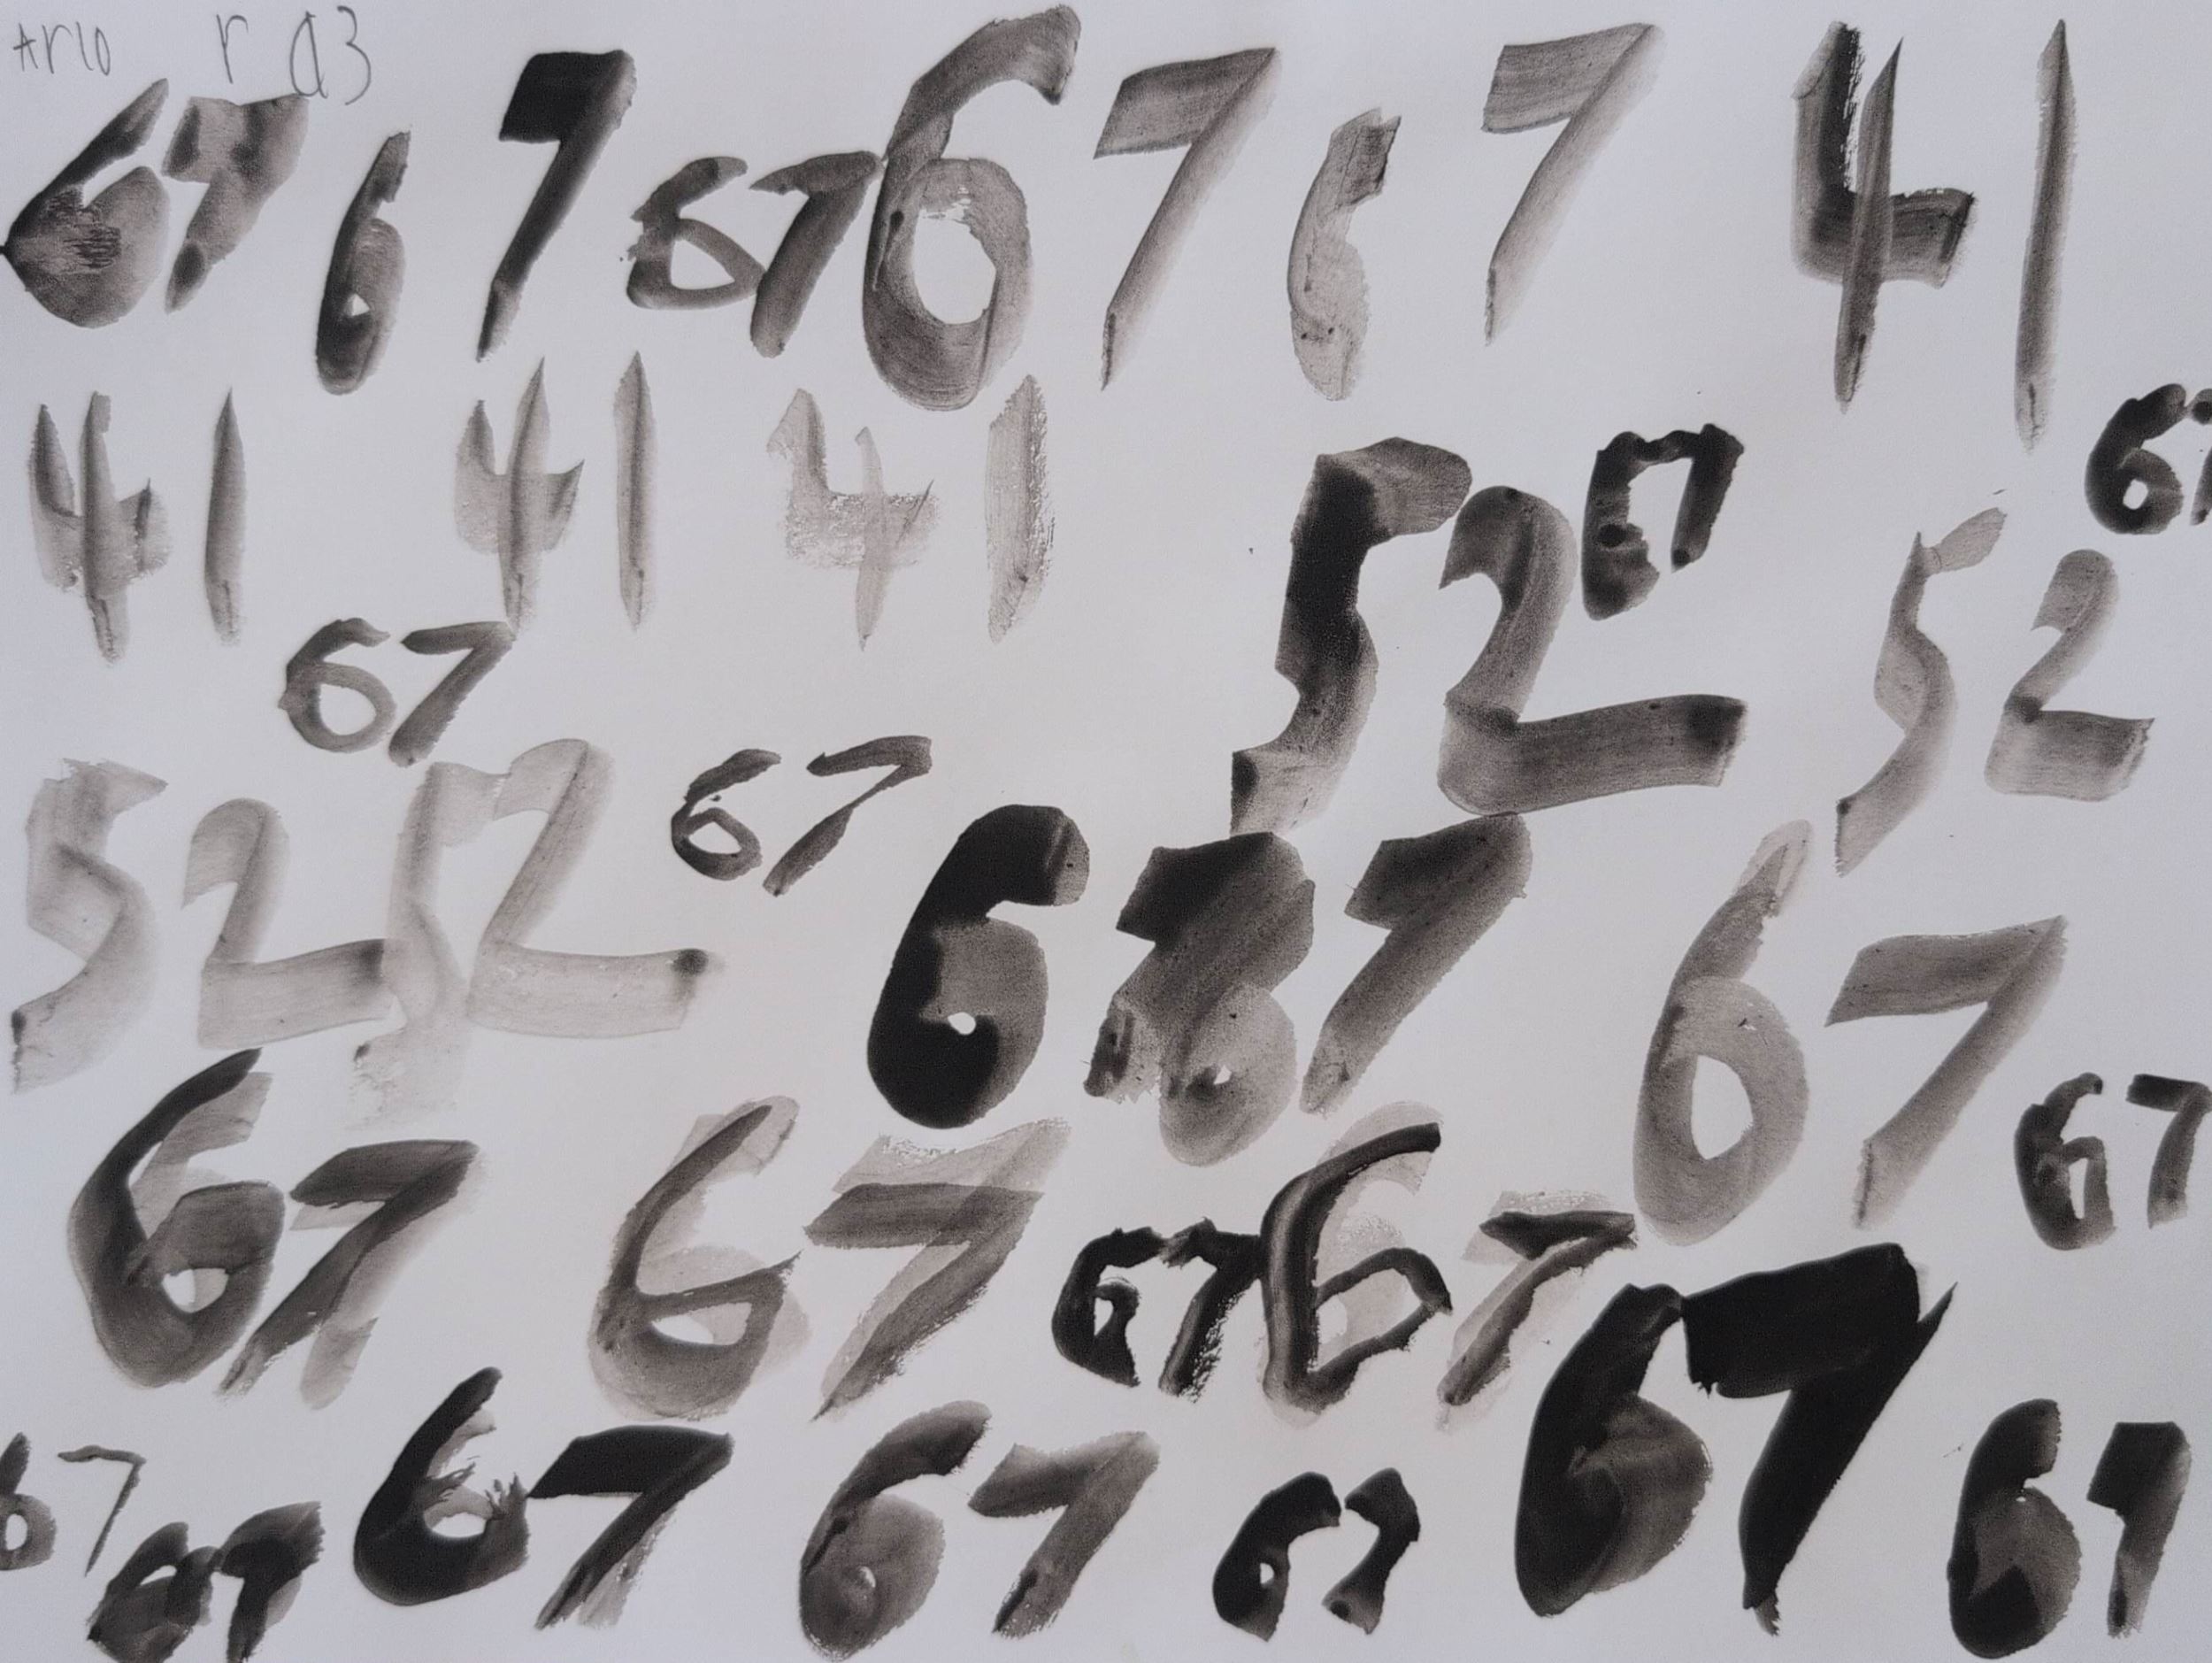 Arlo r a3
67 67 67 67 67 41
41 41 41 52 67 52 67
67
52 52 67 67 67 67
67 67 67 67 67 67
67 67 67 67 67 67